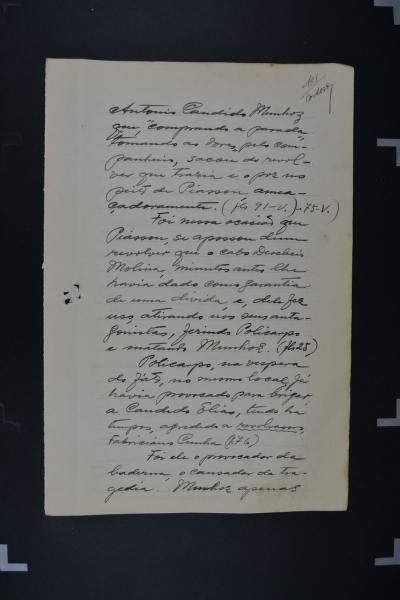 Antonio Candido Munhoz
que, "comprando a parada"
tomando as dores pelo com-
panheiro, sacou do revol-
ver que trazia e o poz no
peito de Piasson amea-
çadoramente. (fls 91-V.)-75-V.)
Foi nessa ocasião que
Piasson, se apossou dum
revolver que o cabo Diocleciο
Molina, minutos antes lhe
havia dado como garantia
de uma divida e, dele fez
uso atirando nos seus anta-
gonistas, ferindo Policarpo
e matando Munhoz. (fls 25)
Policarpo, na vespera
do fáto, no mesmo local, já
havia provocado para brigar,
a Candido Elias, tendo ha
tempos, agredido a revolver
Fabriciano Cunha (576)
Foi ele o provocador da
baderna, o causador da tra-
gedia. Munhoz apenas